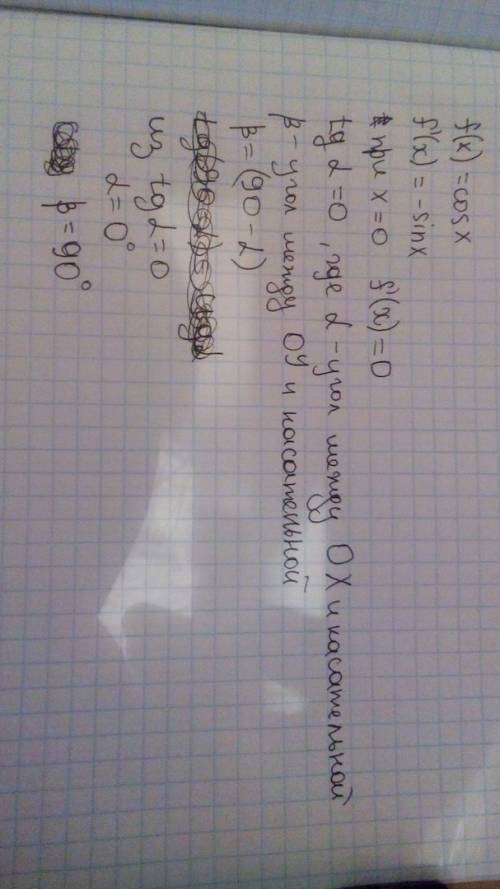 f(x) = cosx
f'(x) = -sinx
при x=0 f'(x)=0
tg α=0, где α - угол между OX и касательной
β - угол между OY и касательной
β = (90-α)
из tg α=0
α=0°
β = 90°